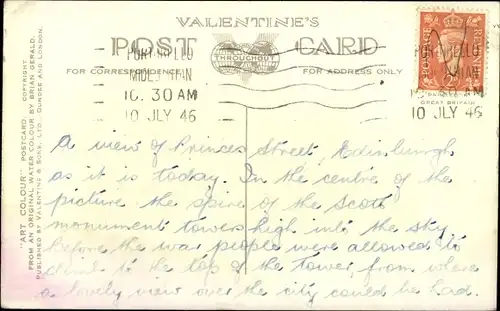 VALENTINE'S
POST CARD
THROUGHOUT
FOR CORRESPONDENCE
FOR ADDRESS ONLY
PORTOBELLO
MIDLOTHIAN
10.30 AM
10 JLY 46
PORTOBELLO
10 JLY 46
POSTAGE REVENUE
PRINTED IN
GREAT BRITAIN
"ART COLOUR" POSTCARD. COPYRIGHT.
FROM AN ORIGINAL WATER COLOUR BY BRIAN GERALD.
PUBLISHED BY VALENTINE & SONS, LTD., DUNDEE AND LONDON.
A view of Princes Street, Edinburgh
as it is today. In the centre of the
picture the spire of the Scott
monument towers high into the sky
before the war people were allowed to
climb to the top of the tower, from where
a lovely view over the city could be had.